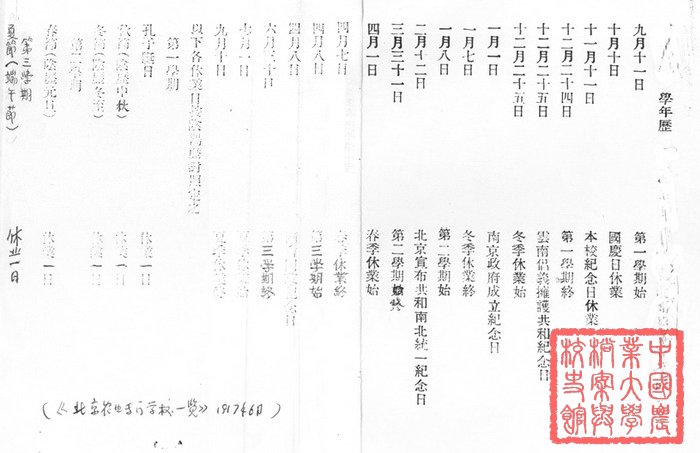 學年歷
九月十一日 第一學期始
十月十日 國慶日休業
十一月十一日 本校紀念日休業
十二月二十四日 第一學期終
十二月二十五日 雲南倡義擁護共和紀念日
十二月二十五日 冬季休業始
一月一日 南京政府成立紀念日
冬季休業終
一月八日 第二學期始
二月十二日 北京宣布共和南北統一紀念日
三月三十一日 第二學期終
四月一日 春季休業始
四月七日 春季休業終
四月八日 第三學期始
四月八日 紀念日
六月三十日 第三學期終
七月一日
九月十日
以下各休業日
第一學期
孔子誕日 休業一日
秋節(陰曆中秋) 休業一日
冬節(陰曆冬至) 休業一日
第二學期
春節(陰曆元旦) 休業一日
第三學期
夏節(端午節) 休业一日
(《北京农业专门学校一覧》1917年6日)
中國農業大學檔案與校史館